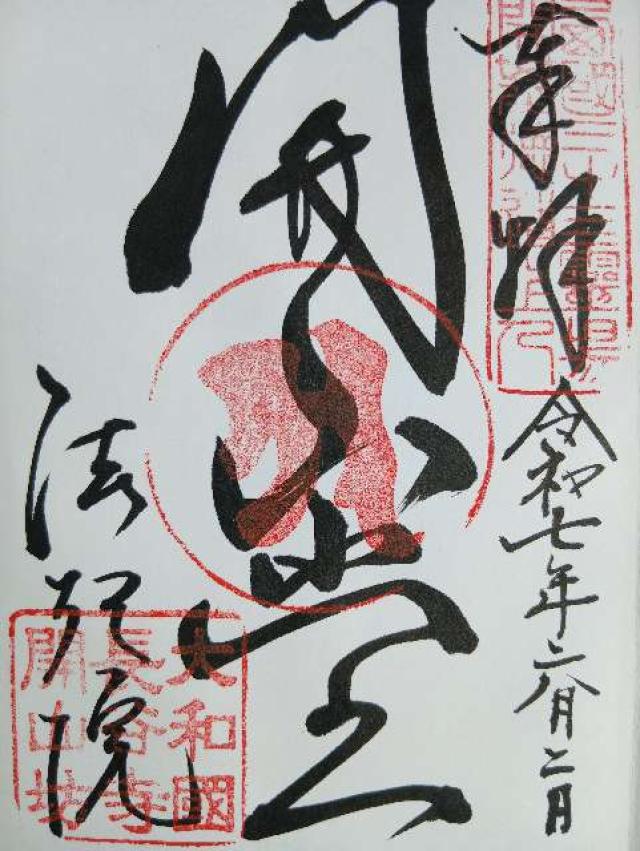 奉拝
令和七年六月二日
開山堂
法起院
大和國
長谷寺
開山坊